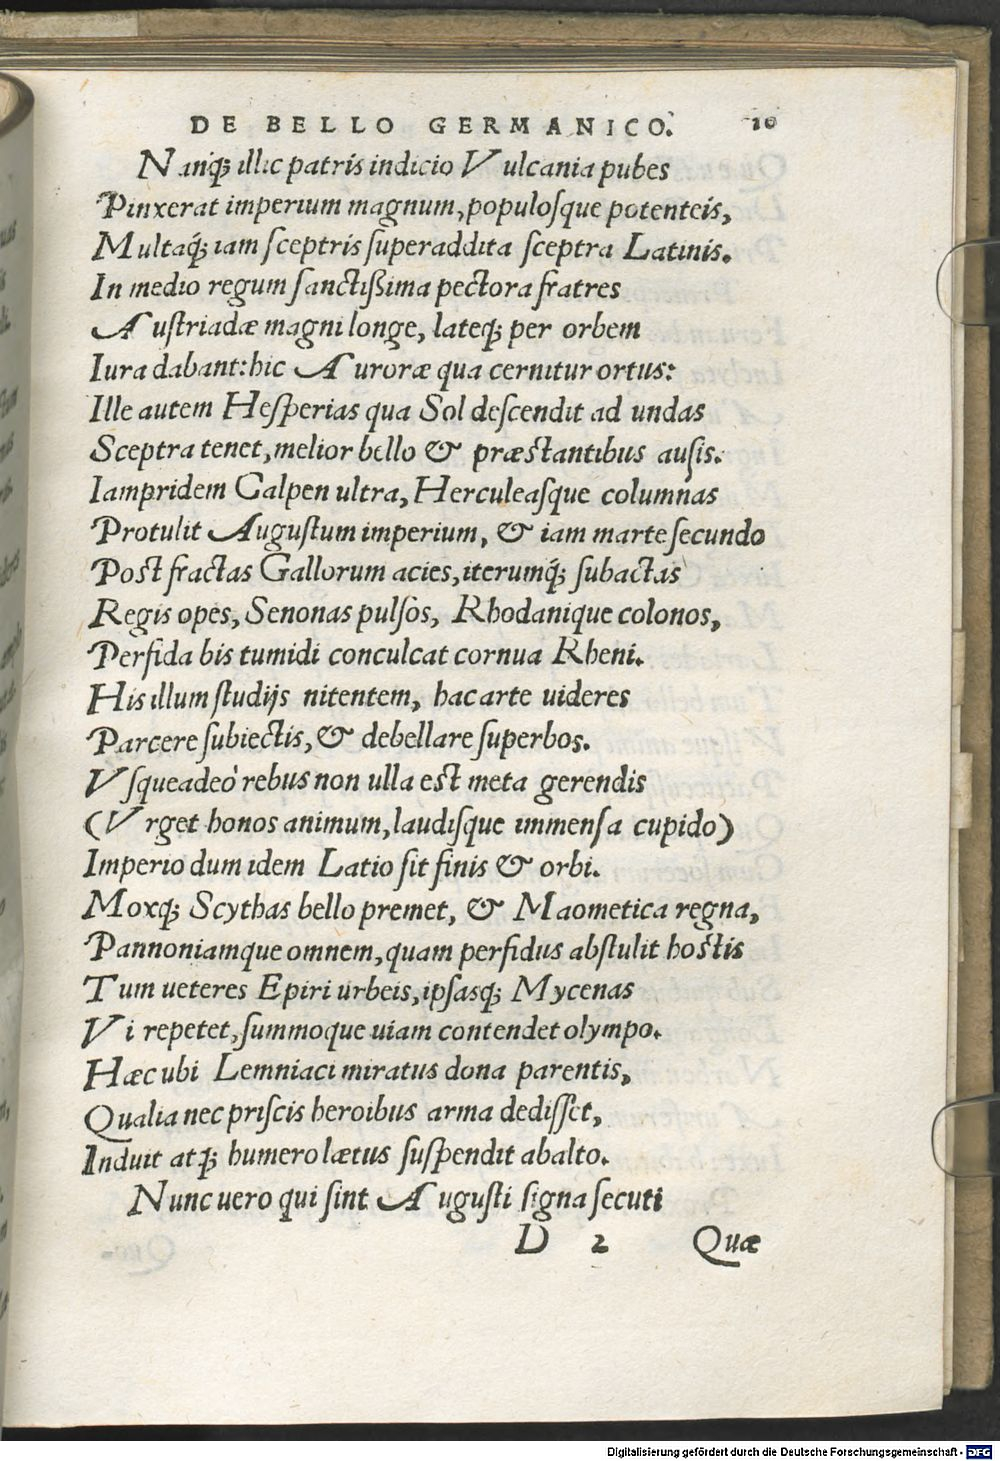 DE BELLO GERMANICO. 10
Nanq; illic patris indicio Vulcania pubes
Pinxerat imperium magnum, populoſque potenteis,
Multaq́; iam ſceptris ſuperaddita ſceptra Latinis.
In medio regum ſanctißima pectora fratres
Auſtriadæ magni longe, lateq; per orbem
Iura dabant: hic Auroræ qua cernitur ortus:
Ille autem Heſperias qua Sol deſcendit ad undas
Sceptra tenet, melior bello & præstantibus auſis.
Iampridem Calpen ultra, Herculeaſque columnas
Protulit Auguſtum imperium, & iam marte ſecundo
Post fractas Gallorum acies, iterumq́; ſubactas
Regis opes, Senonas pulſos, Rhodanique colonos,
Perfida bis tumidi conculcat cornua Rheni.
His illum ſtudijs nitentem, hac arte uideres
Parcere ſubiectis, & debellare ſuperbos.
Vſqueadeò rebus non ulla est meta gerendis
(Vrget honos animum, laudiſque immenſa cupido)
Imperio dum idem Latio ſit finis & orbi.
Moxq; Scythas bello premet, & Maometica regna,
Pannoniamque omnem, quam perfidus abſtulit hostis
Tum ueteres Epiri urbeis, ipſasq; Mycenas
Vi repetet, ſummoque uiam contendet olympo.
Hæc ubi Lemniaci miratus dona parentis,
Qualia nec priſcis heroibus arma dediſſet,
Induit atq; humero lætus ſuſpendit ab alto.
Nunc uero qui ſint Auguſti ſigna ſecuti
D 2 Quæ
Digitalisierung gefördert durch die Deutsche Forschungsgemeinschaft - DFG